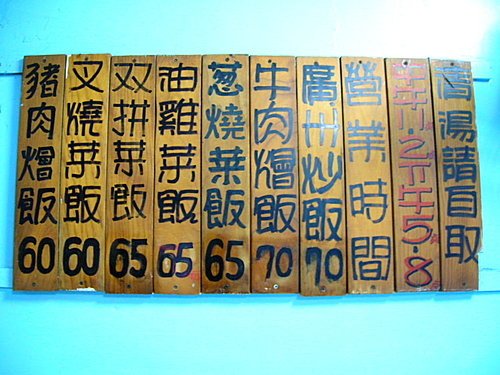 豬肉燴飯60
叉燒菜飯60
双拼菜飯65
油雞菜飯65
葱燒菜飯65
牛肉燴飯70
廣州炒飯70
營業時間
下午5·8
湯請自取